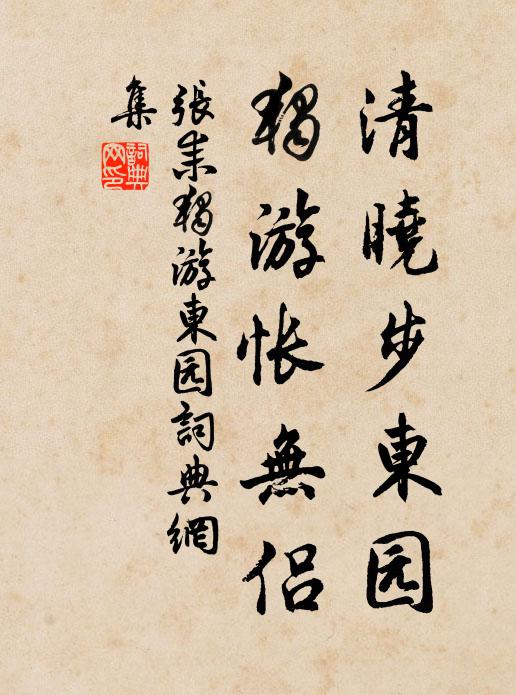 清曉步東园
獨游悵無侶
張耒獨游東园詞典網
集
詞典
网印